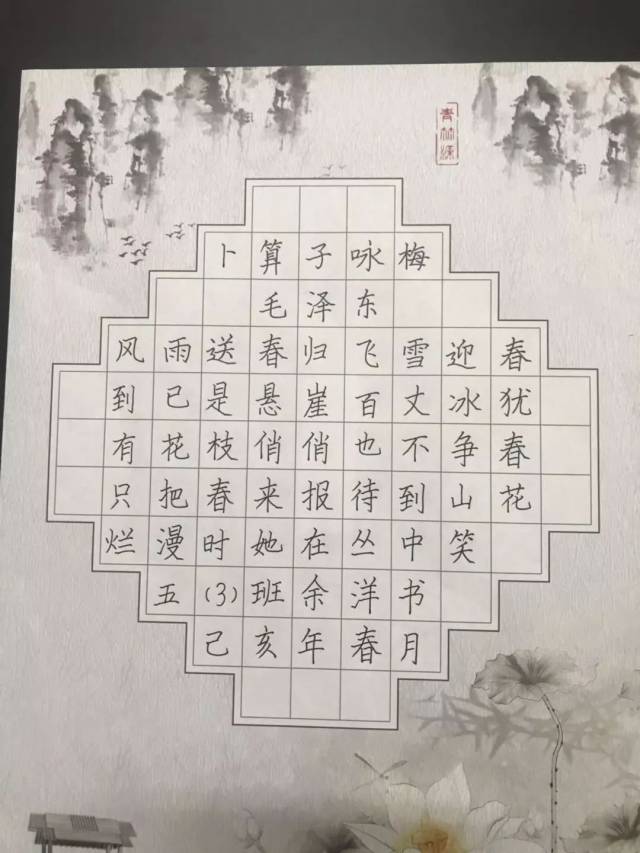 卜算子咏梅
毛泽东
风雨送春归飞雪迎春
到已是悬崖百丈冰犹
有花枝俏俏也不争春
只把春来报待到山花
烂漫时她在丛中笑
五(3)班余洋书
己亥年春月